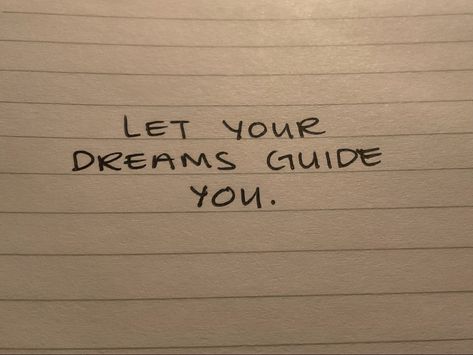 LET YOUR
DREAMS GUIDE
YOU.